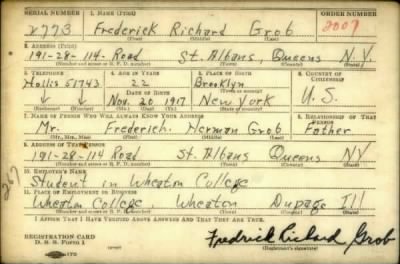 SERIAL NUMBER 1. NAME (Print) ORDER NUMBER
2773 Frederick Richard Grob 2007
(First) (Middle) (Last)
2. ADDRESS (Print)
191-28-114-Road St. Albans, Queens N.Y.
(Number and street or R. F. D. number) (Town) (County) (State)
3. TELEPHONE 4. AGE IN YEARS 5. PLACE OF BIRTH 6. COUNTRY OF CITIZENSHIP
Hollis 51743 22 Brooklyn
DATE OF BIRTH (Town or county)
Nov. 20 1917 New York U.S.
(Exchange) (Number) (Mo.) (Day) (Yr.) (State or country)
7. NAME OF PERSON WHO WILL ALWAYS KNOW YOUR ADDRESS 8. RELATIONSHIP OF THAT PERSON
Mr. Frederich. Herman Grob Father
(Mr., Mrs., Miss) (First) (Middle) (Last)
9. ADDRESS OF THAT PERSON
191-28-114 Road St. Albans Queens NY
(Number and street or R. F. D. number) (Town) (County) (State)
10. EMPLOYER'S NAME
Student in Wheaton College
11. PLACE OF EMPLOYMENT OR BUSINESS
Wheaton College Wheaton Dupage Ill
(Number and street or R. F. D. number) (Town) (County) (State)
I AFFIRM THAT I HAVE VERIFIED ABOVE ANSWERS AND THAT THEY ARE TRUE.
REGISTRATION CARD
D. S. S. Form 1
Fredrick Richard Grob
(Registrant's signature)